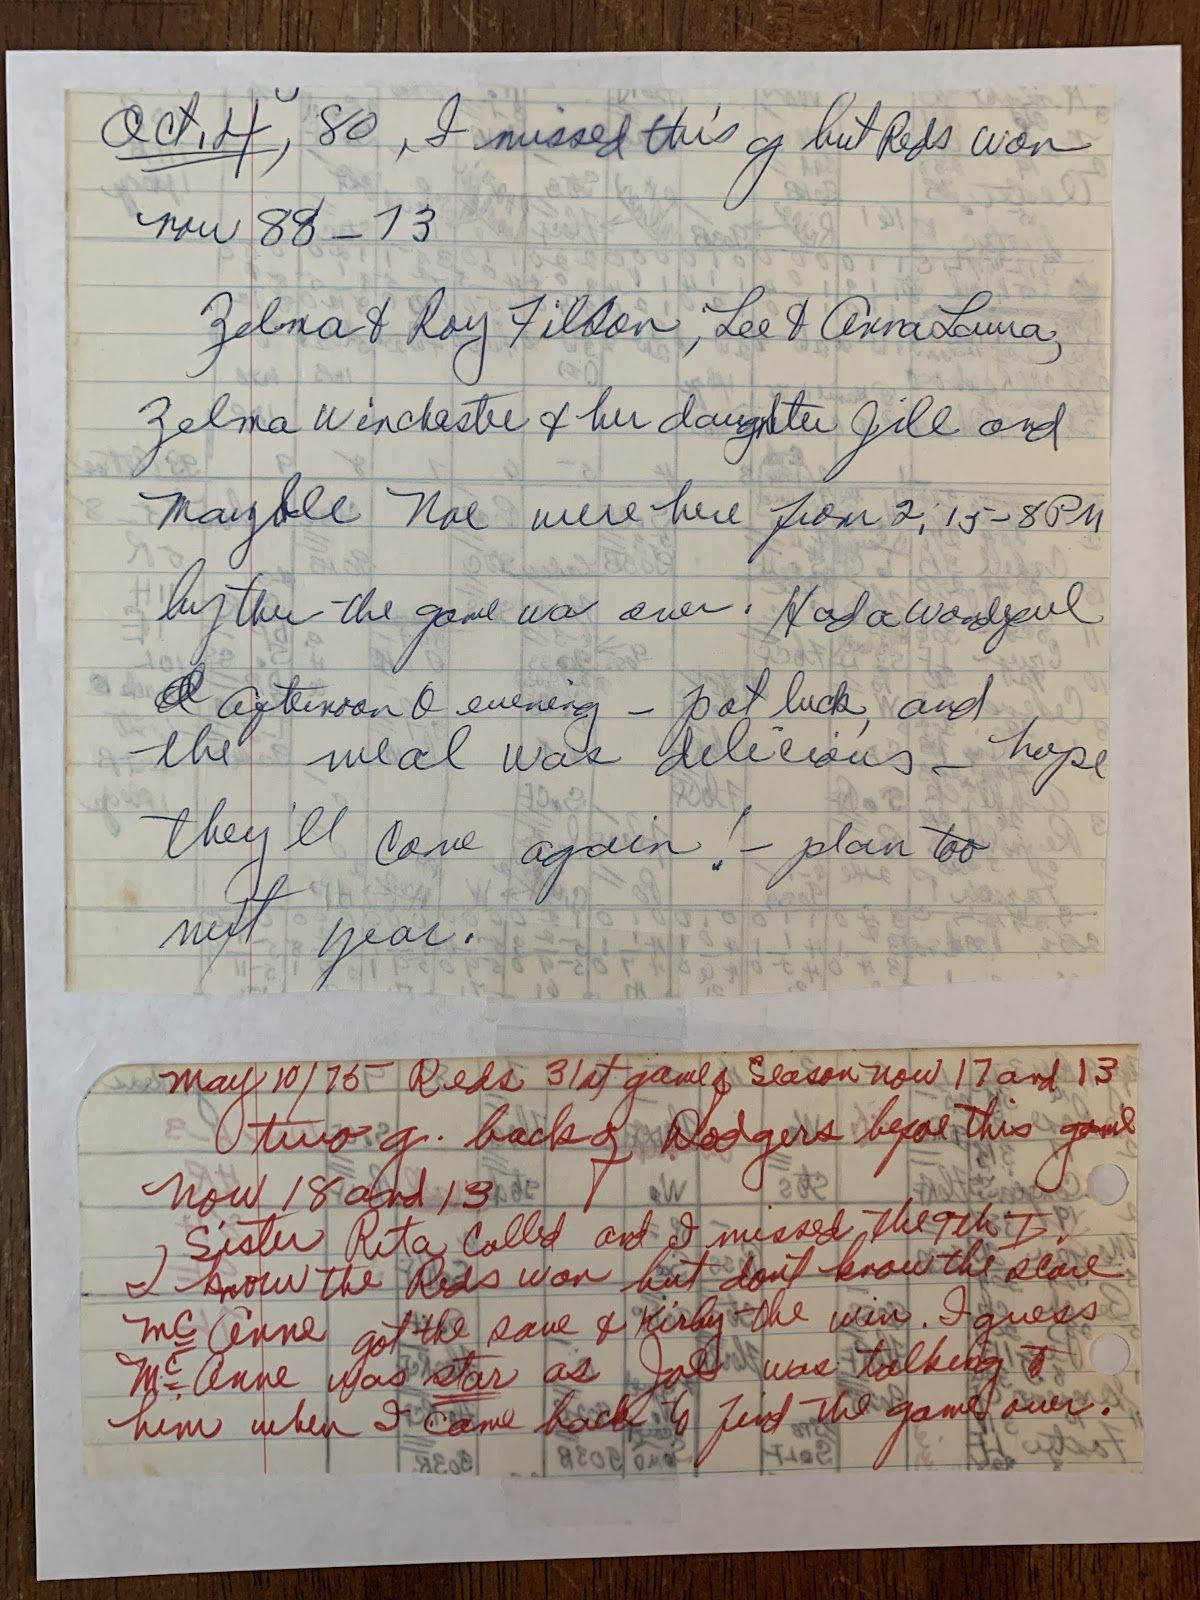 Oct. 4, 80, I missed this g but Reds won
now 88-73
Zelma & Roy Filson, Lee & Anna Laura,
Zelma Winchester & her daughter Jill and
Maybelle Noe were here from 2:15-8PM
by then the game was over. Had a wonderful
afternoon & evening - pot luck, and
the meal was delicious - hope
they'll come again! - plan too
next year.
May 10/75 Reds 31st game, Season now 17 and 13
two g. back of Dodgers before this game
now 18 and 13
Sister Rita called and I missed the 9th I.
I know the Reds won but don't know the score
McAnne got the save & Kirby the win. I guess
McAnne was star as Joe was talking to
him when I came back to find the game over.